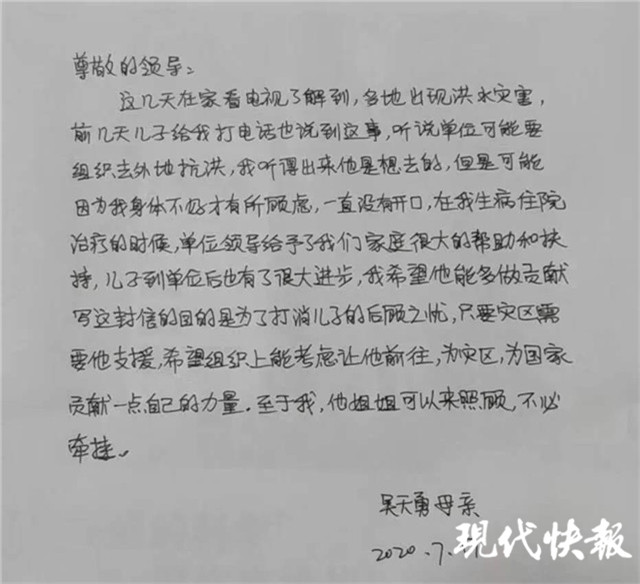 尊敬的领导:
这几天在家看电视了解到,各地出现洪水灾害,
前几天儿子给我打电话也说到这事,听说单位可能要
组织去外地抗洪,我听得出来他是想去的,但是可能
因为我身体不好才有所顾虑,一直没有开口,在我生病住院
治疗的时候,单位领导给予了我们家庭很大的帮助和扶
持,儿子到单位后也有了很大进步,我希望他能多做贡献
写这封信的目的是为了打消儿子的后顾之忧,只要灾区需
要他支援,希望组织上能考虑让他前往,为灾区,为国家
贡献一点自己的力量.至于我,他姐姐可以来照顾,不必
牵挂。
吴天勇母亲
2020.7.
现代快报